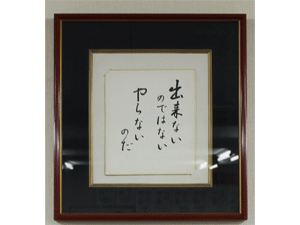 出来ない
のではない
やらない
のだ